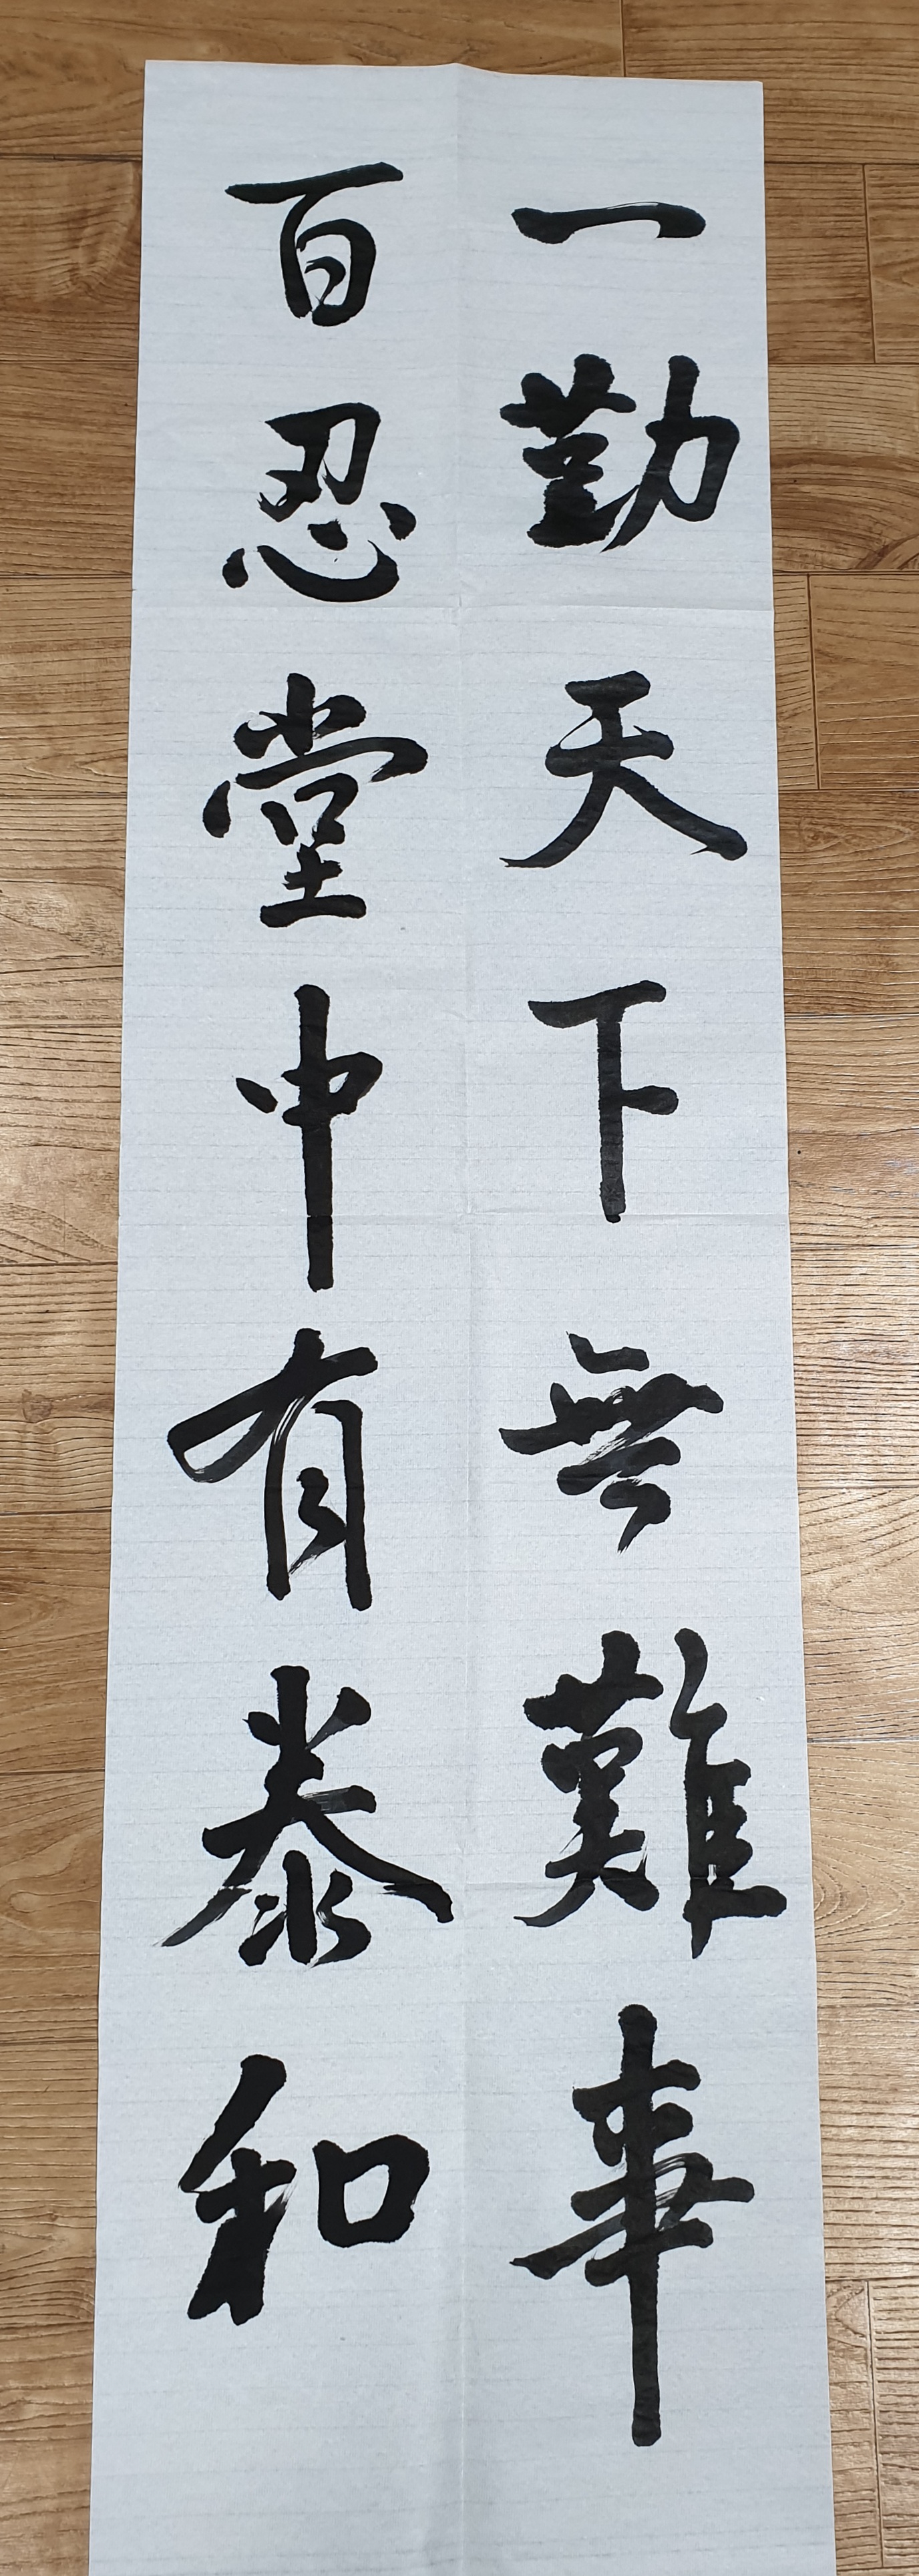 一勤天下無難事
百忍堂中有泰和